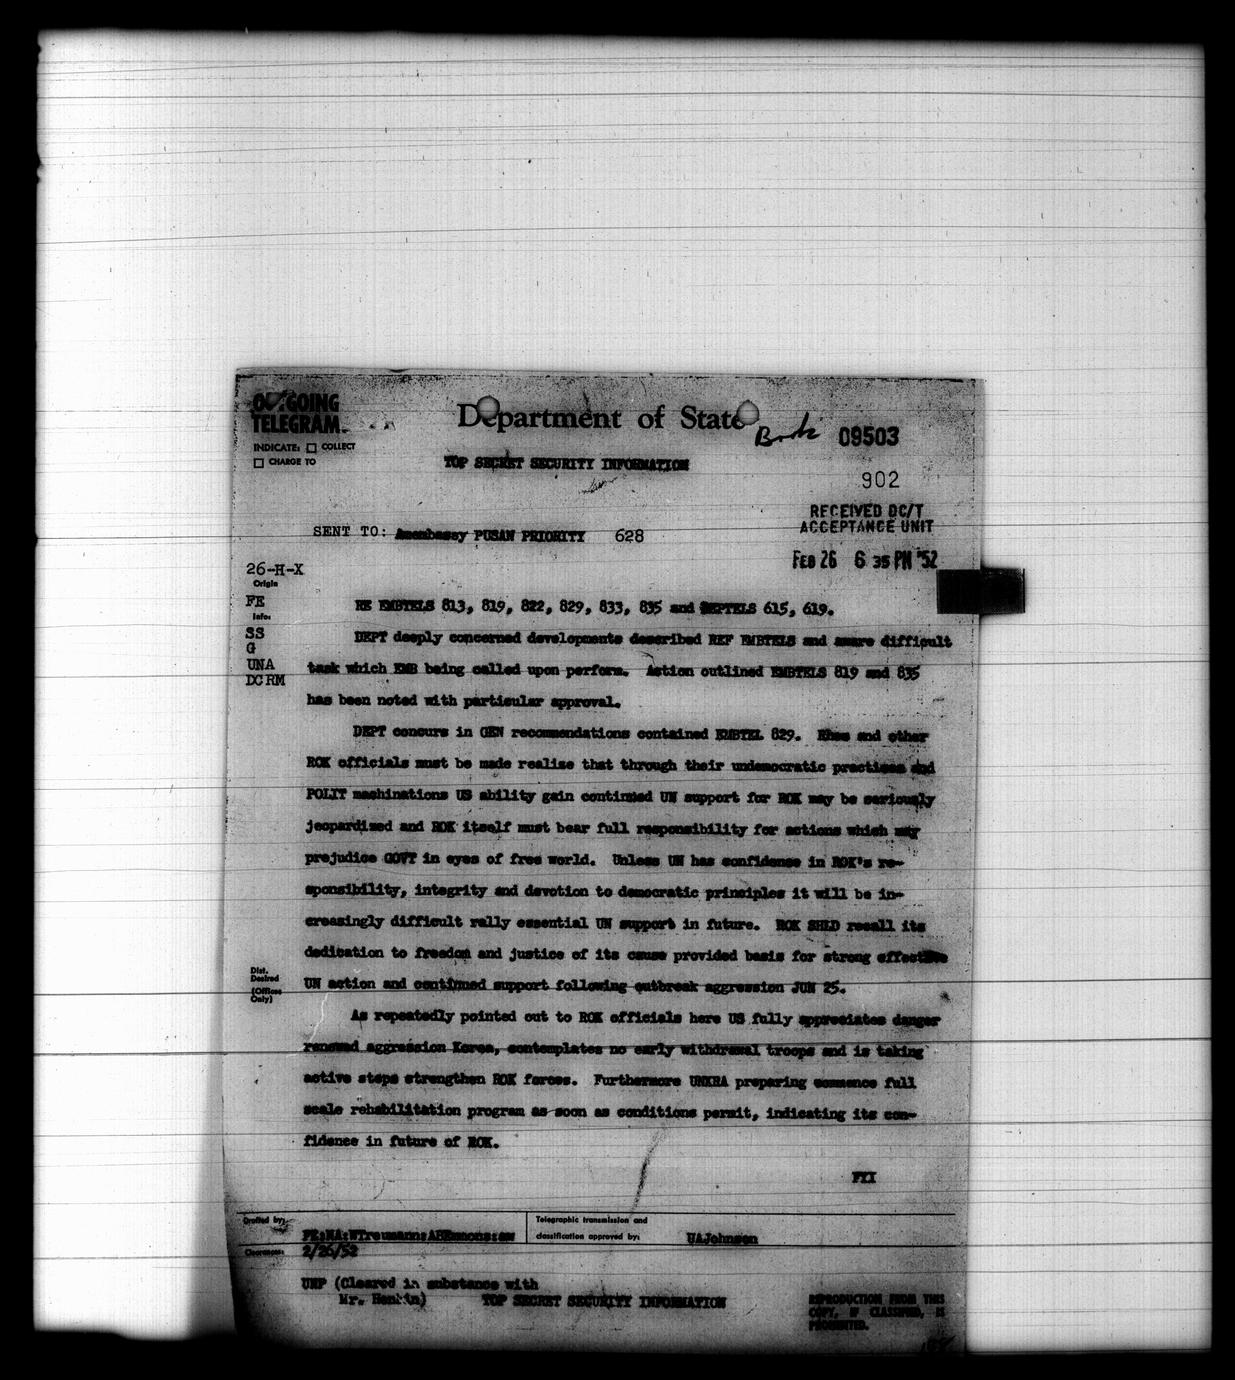 OUTGOING
TELEGRAM
INDICATE: ☐ COLLECT
☐ CHARGE TO
Department of State
09503
TOP SECRET SECURITY INFORMATION
902
RECEIVED DC/T
ACCEPTANCE UNIT
FEB 26 6 35 PM '52
SENT TO: Amembassy PUSAN PRIORITY 628
26-H-X
Origin
FE
Info:
SS
G
UNA
DCRM
RE EMBTELS 813, 819, 822, 829, 833, 835 and DEPTELS 615, 619.
DEPT deeply concerned developments described REF EMBTELS and aware difficult
task which EMB being called upon perform. Action outlined EMBTELS 819 and 835
has been noted with particular approval.
DEPT concurs in GEN recommendations contained EMBTEL 829. Rhee and other
ROK officials must be made realize that through their undemocratic practices and
POLIT machinations US ability gain continued UN support for ROK may be seriously
jeopardized and ROK itself must bear full responsibility for actions which may
prejudice GOVT in eyes of free world. Unless UN has confidence in ROK's re-
sponsibility, integrity and devotion to democratic principles it will be in-
creasingly difficult rally essential UN support in future. ROK SHLD recall its
dedication to freedom and justice of its cause provided basis for strong effective
UN action and continued support following outbreak aggression JUN 25.
As repeatedly pointed out to ROK officials here US fully appreciates danger
renewed aggression Korea, contemplates no early withdrawal troops and is taking
active steps strengthen ROK forces. Furthermore UNKRA preparing commence full
scale rehabilitation program as soon as conditions permit, indicating its con-
fidence in future of ROK.
FYI
Dist.
Desired
(Offices
Only)
Drafted by:
FE:NA:WTreumann:ABEmmons:aw
2/26/52
Telegraphic transmission and
classification approved by:
UAJohnson
Clearances:
UNP (Cleared in substance with
Mr. Henkin)
TOP SECRET SECURITY INFORMATION
REPRODUCTION FROM THIS
COPY, IF CLASSIFIED, IS
PROHIBITED.